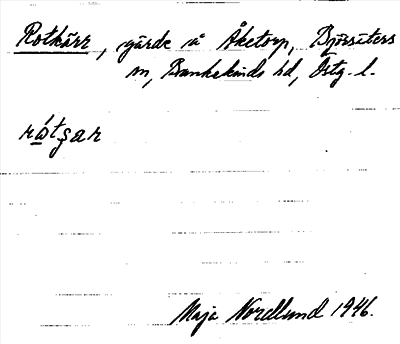 Rotkärr, gärde å Åketorp, Björsäters
sn, Bankekinds hd, Östg. l.
rátşar
Maja Nordlund 1946.